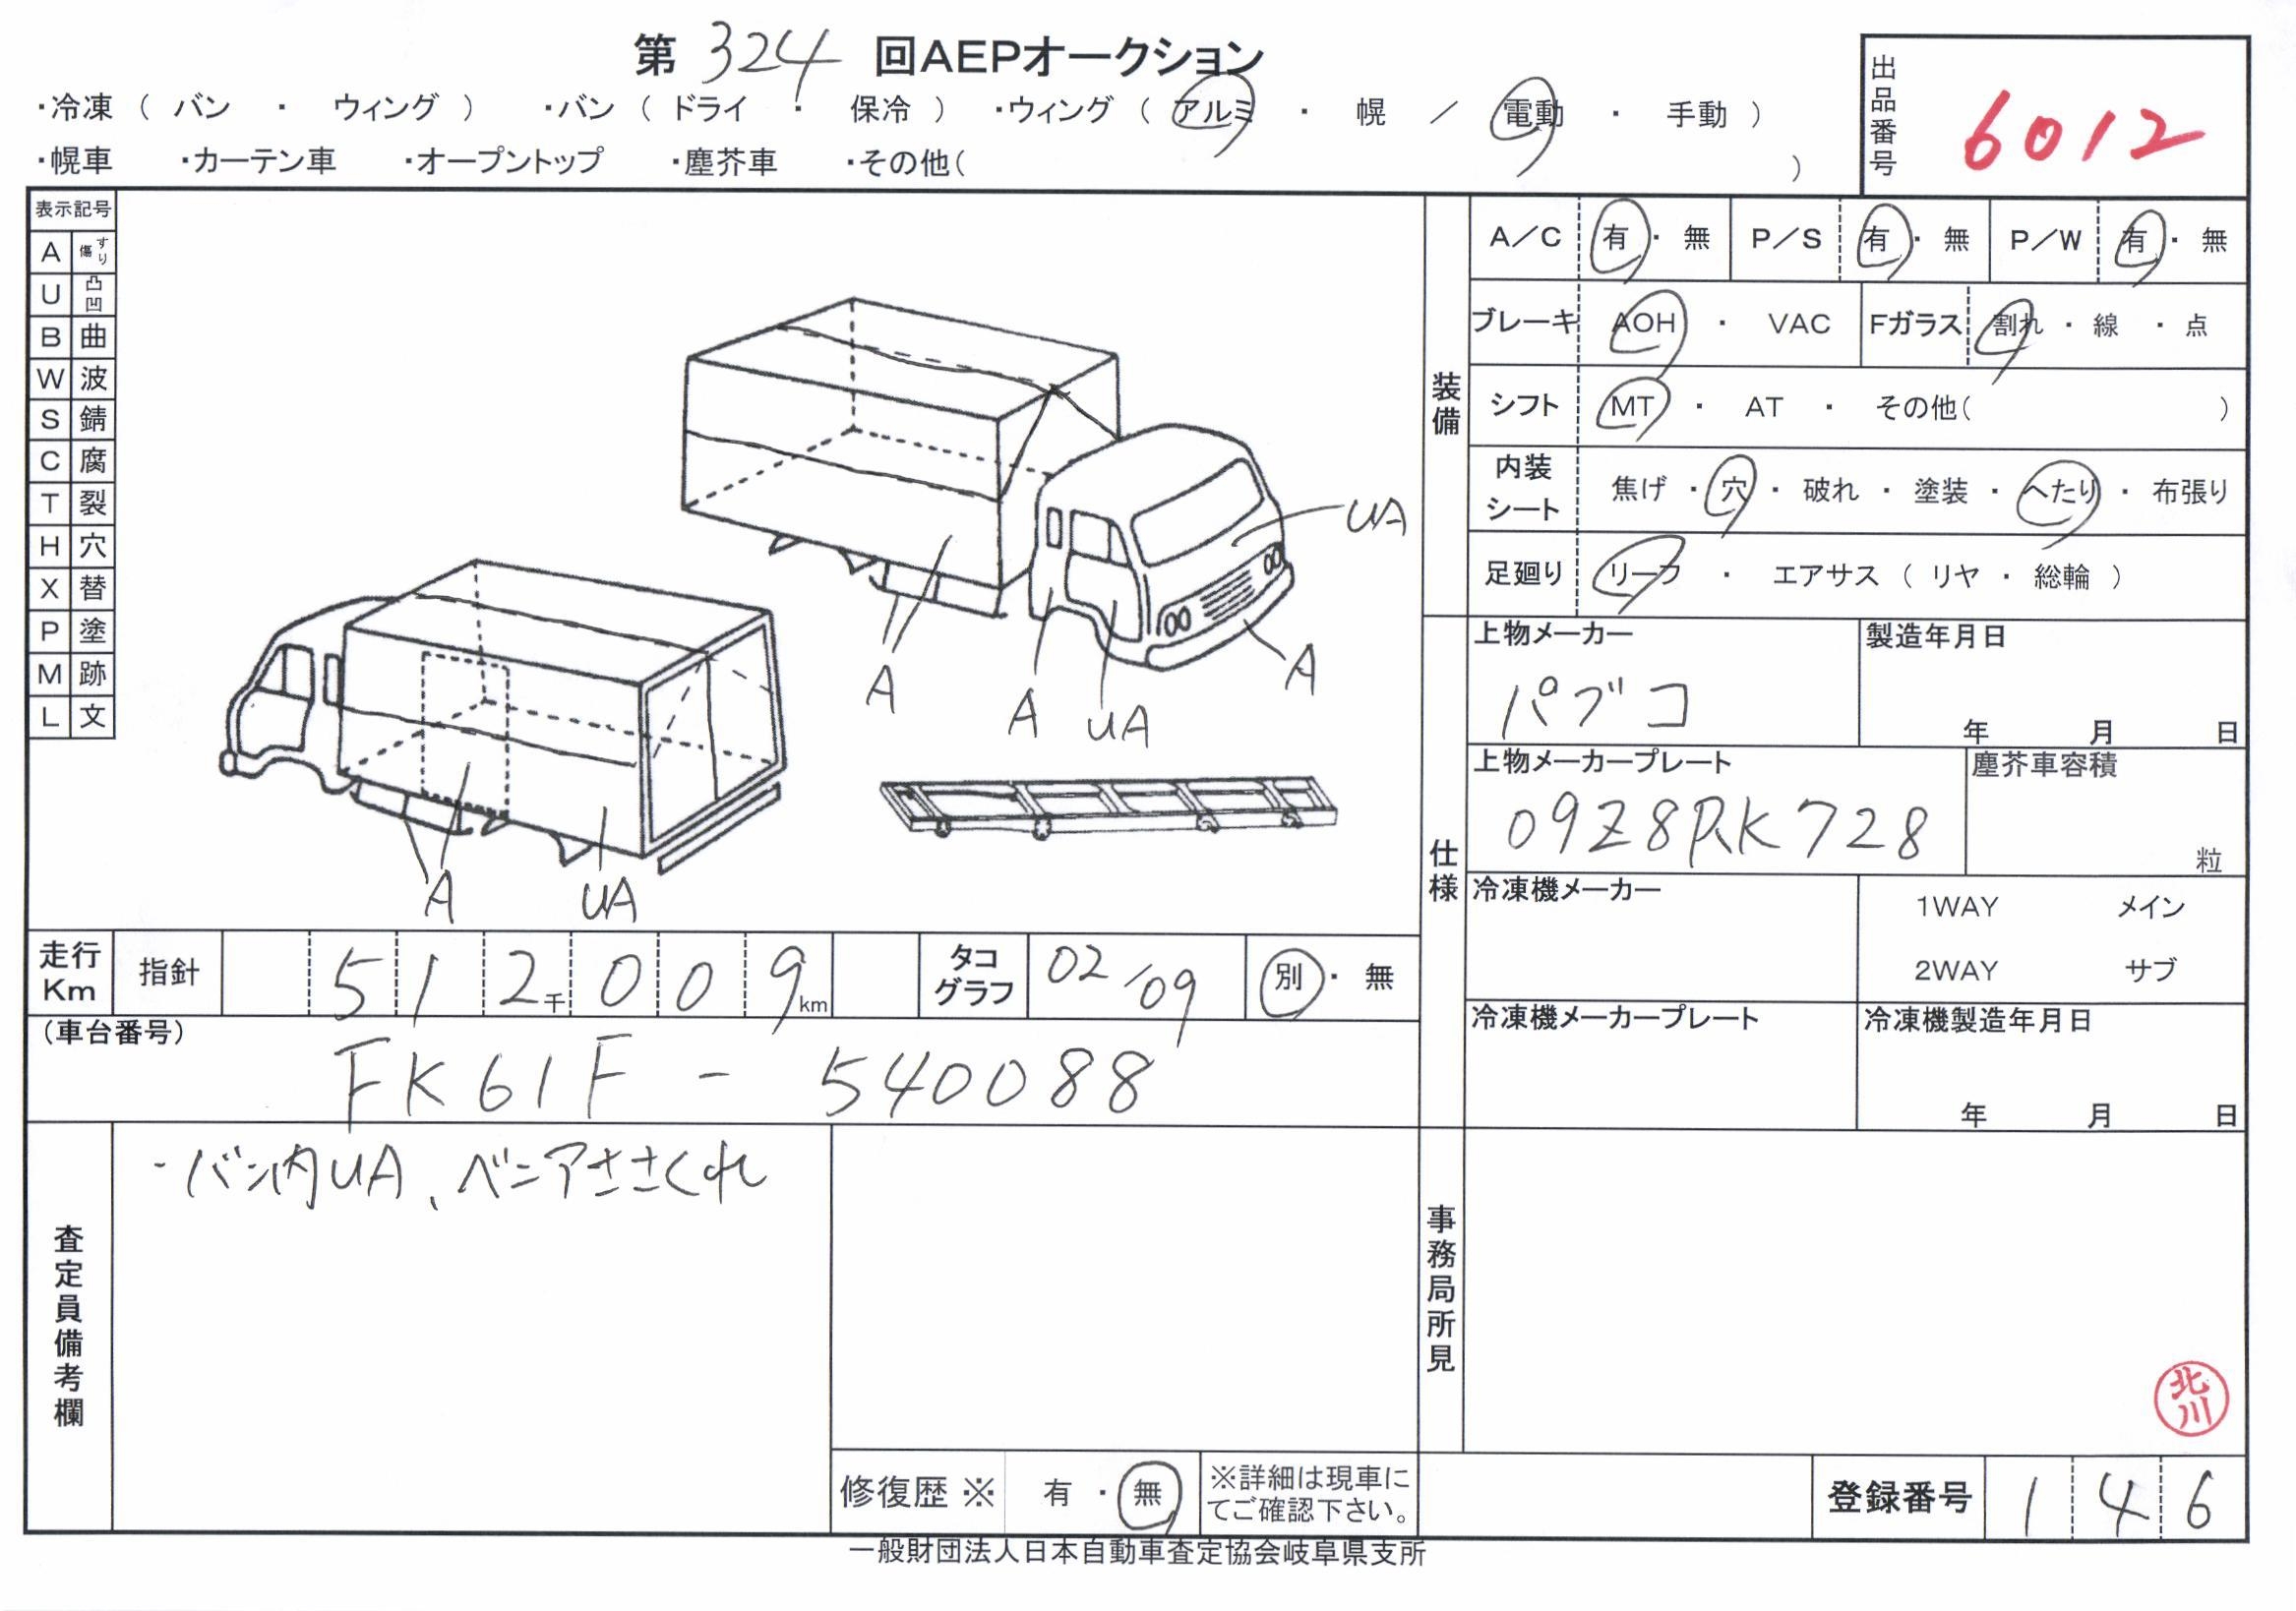 第 324 回AEPオークション
・冷凍 ( バン ・ ウィング ) ・バン ( ドライ ・ 保冷 ) ・ウィング ( アルミ ・ 幌 ／ 電動 ・ 手動 )
・幌車 ・カーテン車 ・オープントップ ・塵芥車 ・その他( )
出品番号
6012
表示記号
A すり傷
U 凸凹
B 曲
W 波
S 錆
C 腐
T 裂
H 穴
X 替
P 塗
M 跡
L 文
UA
A
A
UA
A
A
UA
装備
A／C 有 ・ 無 P／S 有 ・ 無 P／W 有 ・ 無
ブレーキ AOH ・ VAC Fガラス 割れ ・ 線 ・ 点
シフト MT ・ AT ・ その他( )
内装シート 焦げ ・ 穴 ・ 破れ ・ 塗装 ・ へたり ・ 布張り
足廻り リーフ ・ エアサス ( リヤ ・ 総輪 )
仕様
上物メーカー
パブコ
製造年月日
年 月 日
上物メーカープレート
09Z8RK728
塵芥車容積
粒
冷凍機メーカー
1WAY メイン
2WAY サブ
冷凍機メーカープレート
冷凍機製造年月日
年 月 日
走行Km 指針 512千009km タコグラフ 02/09 別 ・ 無
(車台番号)
FK61F - 540088
査定員備考欄
・バン内UA、ベニアささくれ
修復歴 ※ 有 ・ 無
※詳細は現車に
てご確認下さい。
事務局所見
北川
登録番号 146
一般財団法人日本自動車査定協会岐阜県支所